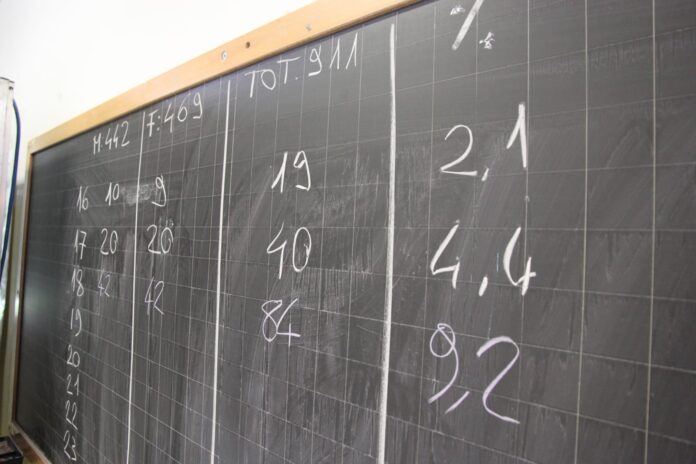 M:442 F:469 TOT. 911 %
16 10 9 19 2,1
17 20 20 40 4,4
18 42 42 84 9,2
19
20
21
22
23